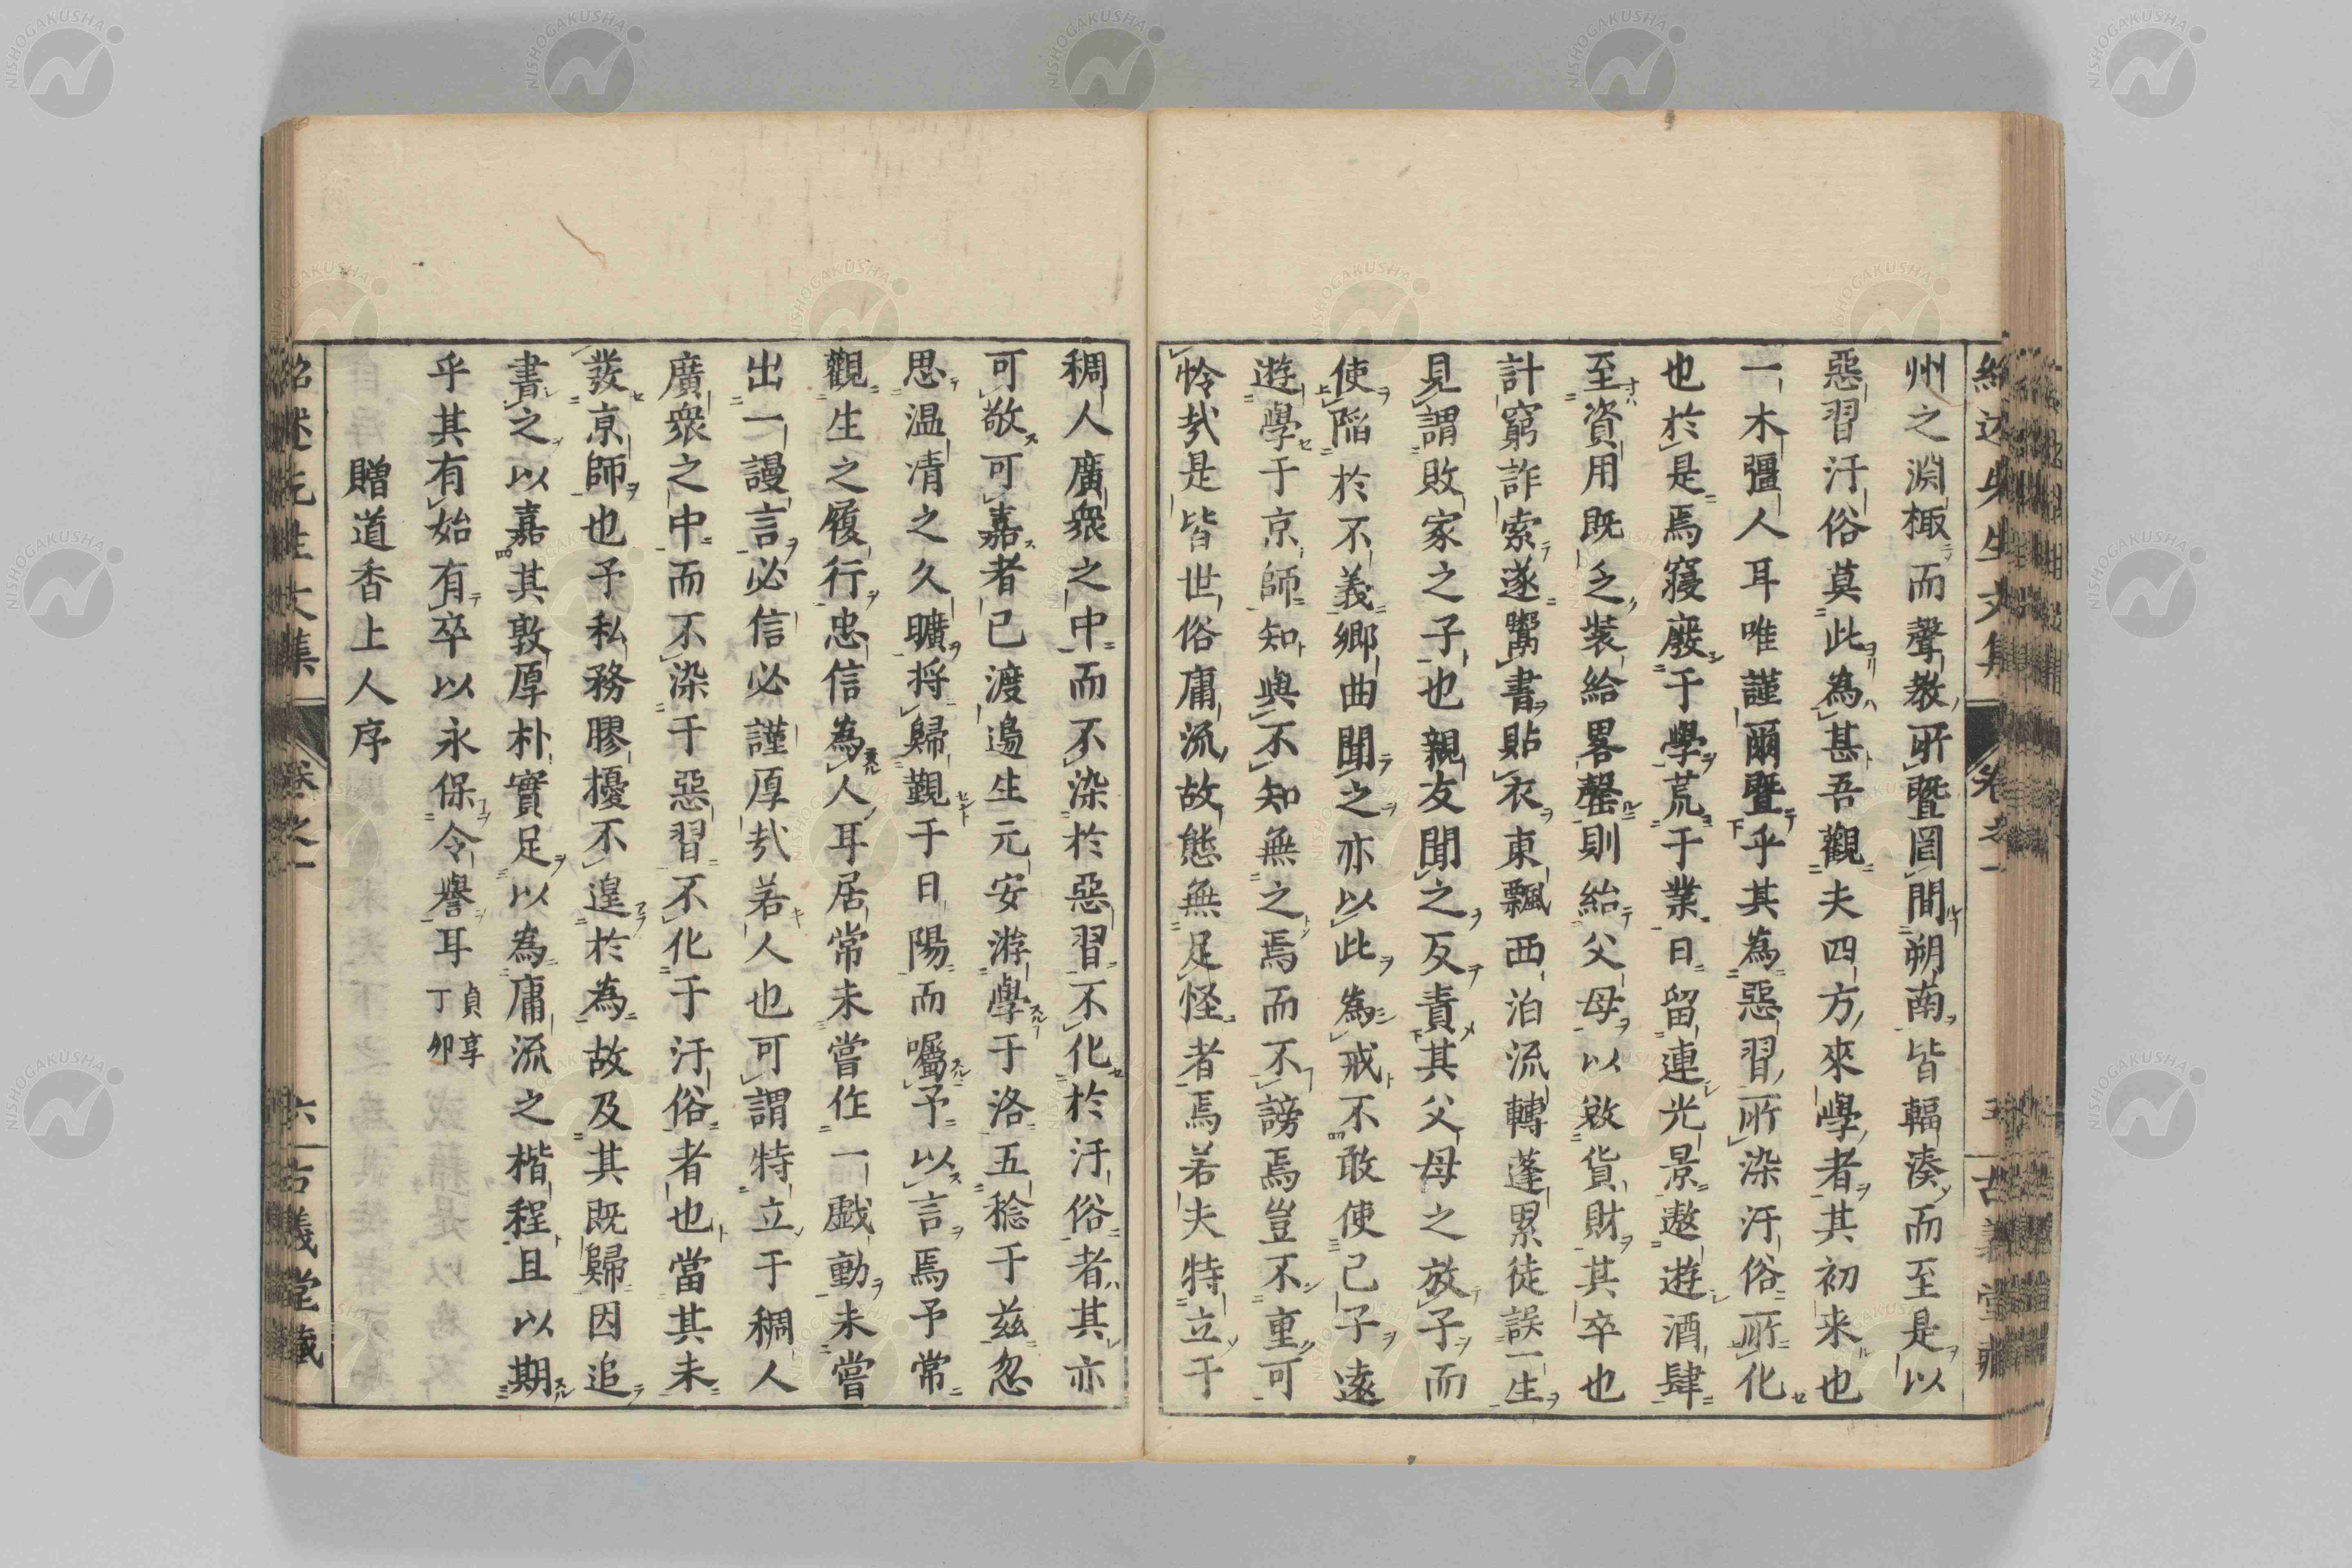 州之淵棷而聲教所暨圄間朔南皆輻湊而至是以
惡習汙俗莫此為甚吾觀夫四方來學者其初来也
一木彊人耳唯謹爾暨乎其為惡習所染汙俗所化
也於是焉寢廢于學荒于業日留連光景遨遊酒肆
至資用既乏裝給畧罄則紿父母以啟貨財其卒也
計窮詐索遂鬻書貼衣東飄西泊流轉蓬累徒誤一生
見謂敗家之子也親友聞之反責其父母之放子而
使陷於不義鄉曲聞之亦以此為戒不敢使己子遠
遊學于京師知與不知無之焉而不謗焉豈不重可
怜㢤是皆世俗庸流故態無足怪者焉若夫特立于
稠人廣衆之中而不染於惡習不化於汙俗者其亦
可敬可嘉者已渡邉生元安游學于洛五稔于兹忽
思温凊之久曠将歸覲于日陽而囑予以言焉予常
觀生之履行忠信為人耳居常未嘗作一戯動未嘗
出一謾言必信必謹厚㢤若人也可謂特立于稠人
廣衆之中而不染于惡習不化于汙俗者也當其未
發京師也予私務膠擾不遑於為故及其既歸因追
書之以嘉其敦厚朴實足以為庸流之楷程且以期
乎其有始有卒以永保令譽耳 貞享丁卯
贈道香上人序
紹述先生文集 卷之一 六 古義堂藏
NISHOGAKUSHA